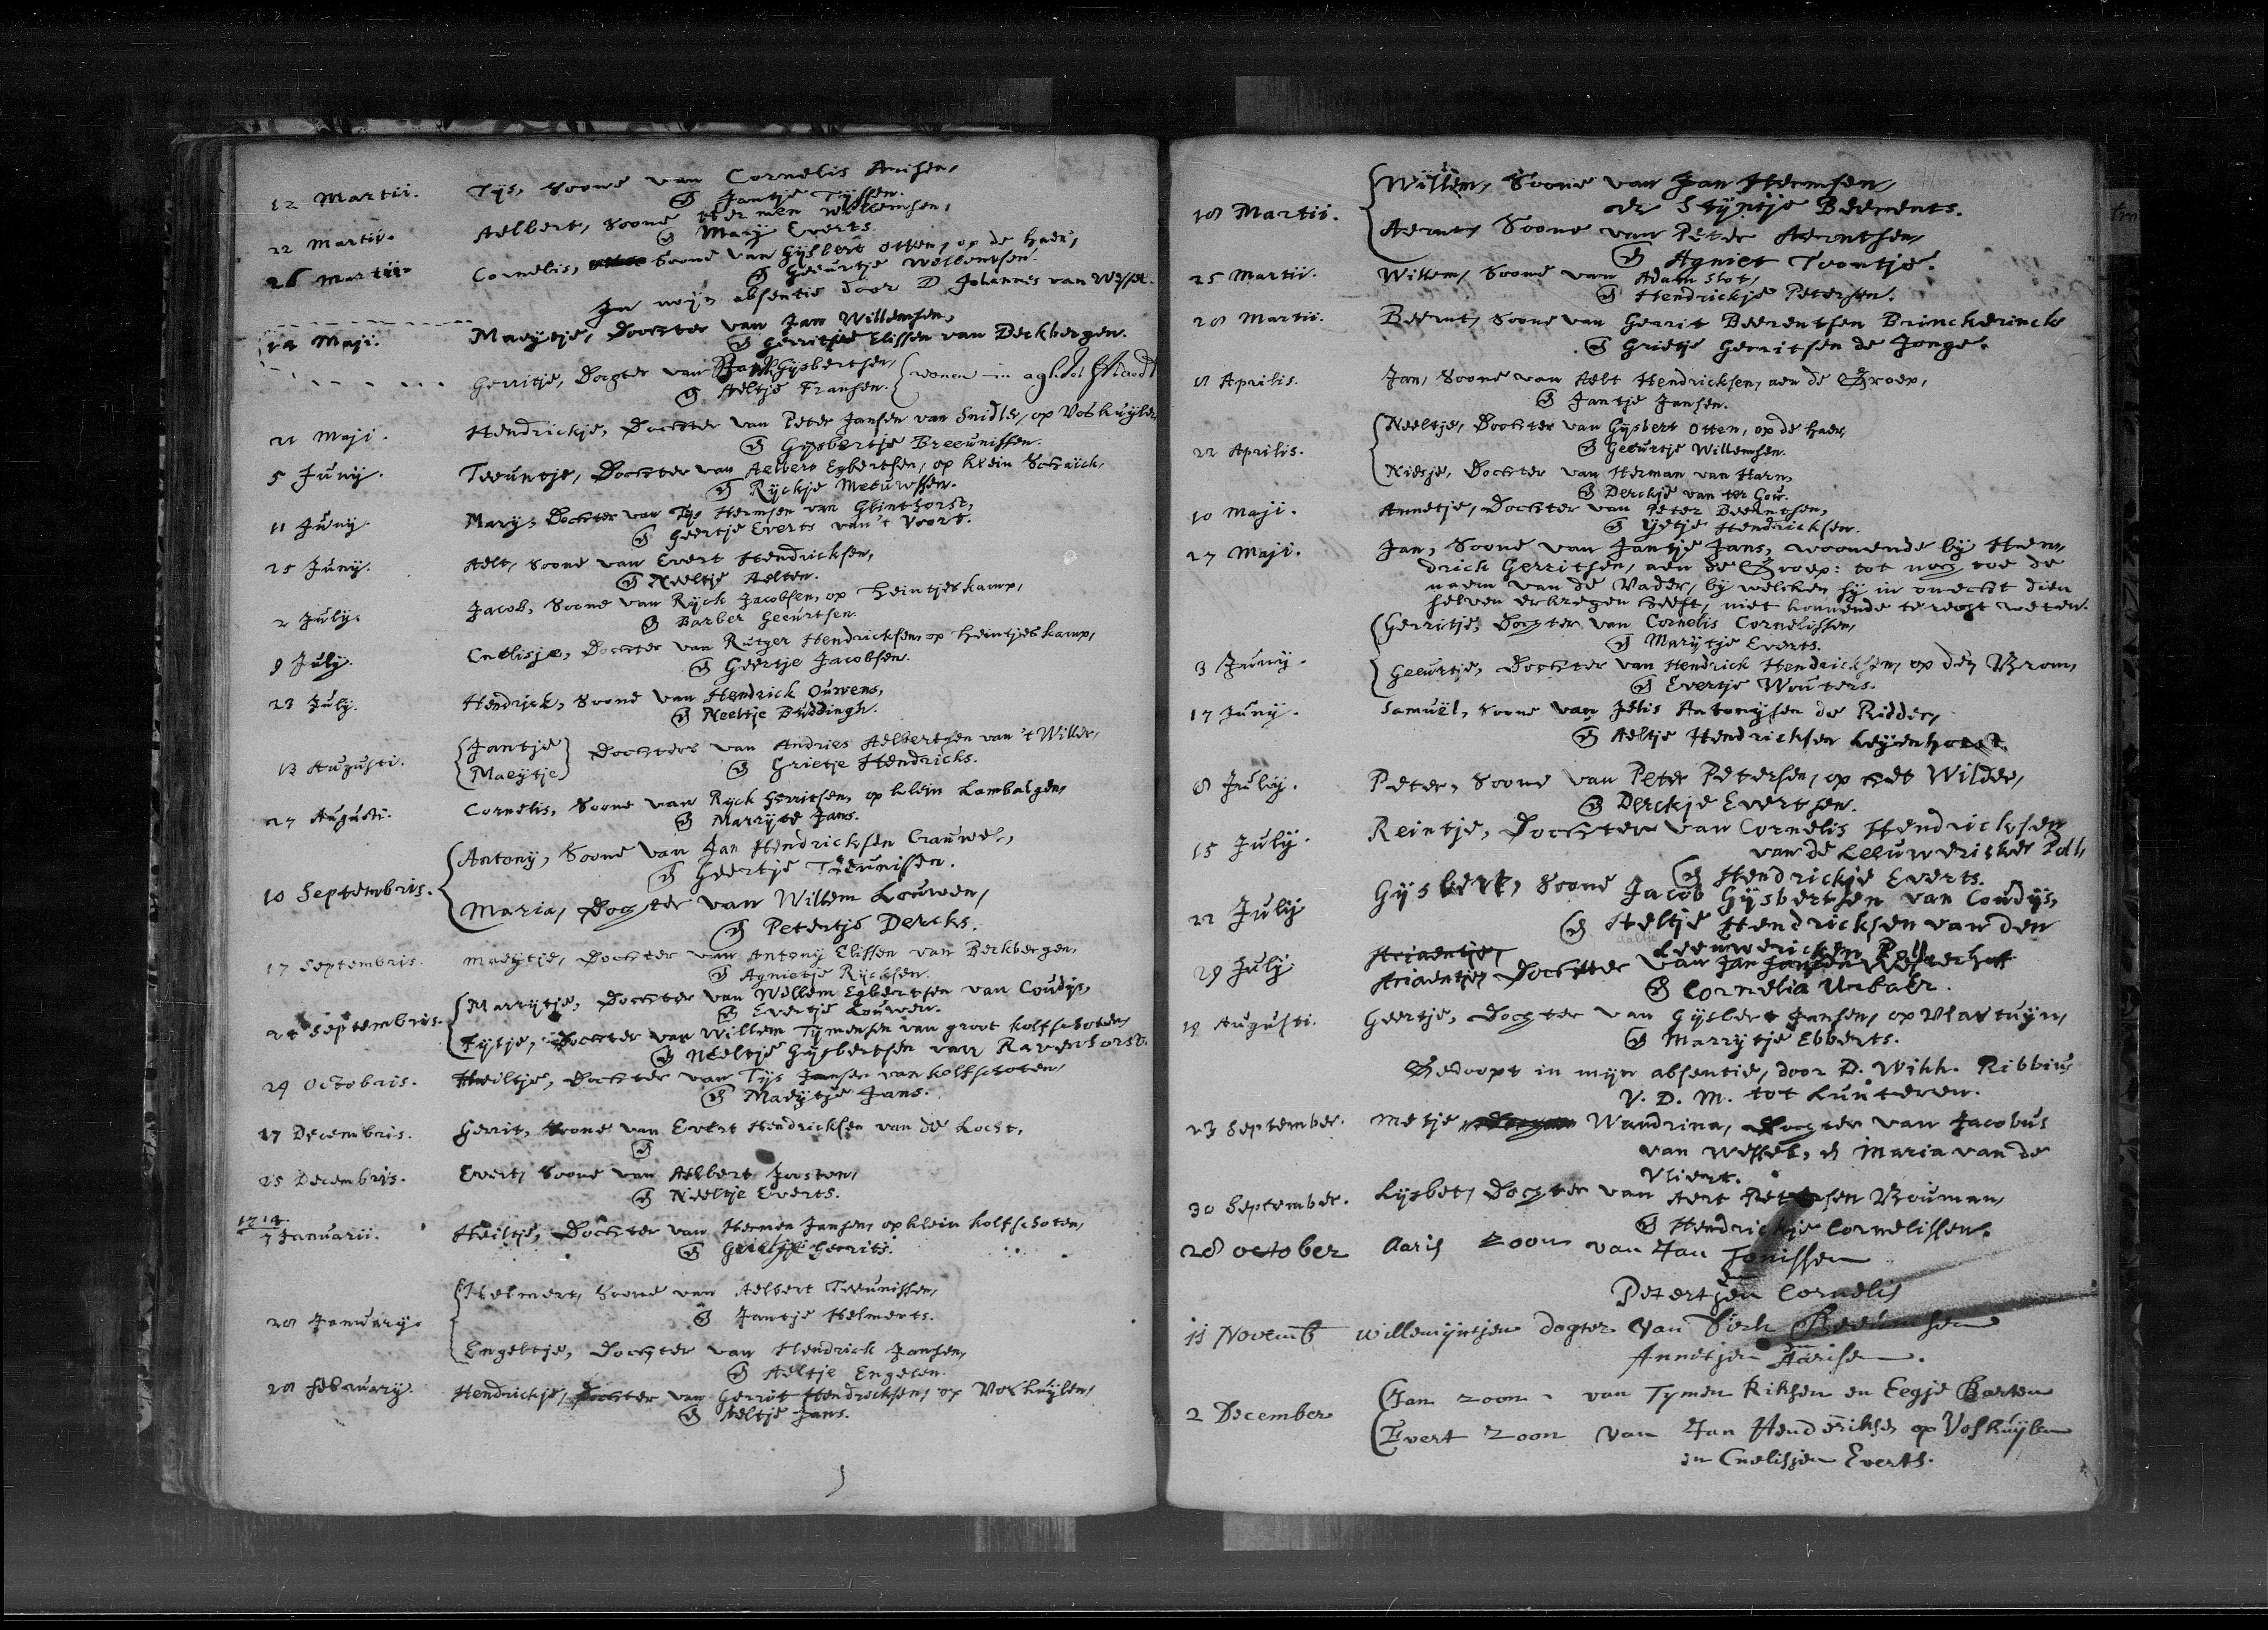 12 Martii. Tijs, Soone van Cornelis Arissen,
en Jantje Tijssen.
22 Martii. Aelbert, Soone Hermen Willemsen,
en Marij Everts.
26 Martii. Cornelis, Soone van Gijsbert Otten, op de haer,
en Geeurtje Willemsen.
In mijn absentie door D. Johannes van Wessel.
14 Maji. Maeijtje, Dochter van Jan Willemsen,
en Gerritje Elissen van Berkbergen.
Gerritje, Dogter van Gijsbertsen, woonen in
en Aeltje Fransen.
21 Maji. Hendrickje, Dochter van Peter Jansen van Snidler, op Voskuijlen,
en Gijsbertje Breeunissen.
5 Junij. Teeuntje, Dochter van Aelbert Egbertsen, op klein Schaick,
en Rijckje Meeuwssen.
11 Junij. Marij, Dochter van Tijs Hermsen van Glinthorst,
en Geertje Everts van 't Voort.
25 Junij. Aelt, Soone van Evert Hendricksen,
en Neeltje Aelten.
2 Julij. Jacob, Soone van Rijck Jacobsen, op Heintjeskamp,
en Barber Geeurtsen.
9 Julij. Cnelisje, Dochter van Rutger Hendricksen, op Heintjeskamp,
en Geertje Jacobsen.
23 Julij. Hendrick, Soone van Hendrick Ouwens,
en Neeltje Buddingh.
13 Augusti. Jantje Maeijtje Dochters van Andries Aelbertsen van 't Willer,
en Grietje Hendricks.
27 Augusti. Cornelis, Soone van Rijck Gerritsen, op klein Lambalgen,
en Marrijtje Jans.
Antonij, Soone van Jan Hendricksen Crauwel,
en Geertje Teeunissen.
10 Septembris. Maria, Dogter van Willem Louwen,
en Petertje Dercks.
17 Septembris. Maeijtje, Dochter van Antonij Elissen van Berkbergen,
en Agnietje Rijcksen.
Marrijtje, Dochter van Willem Egbertsen van Coudijs,
en Evertje Louwen.
24 Septembris. Fijtje, Dochter van Willem Tijmensen van groot Kolfschoten,
en Neeltje Gijsbertsen van Ravenhorst.
29 Octobris. Heiltje, Dochter van Tijs Jansen van Kolfschoten,
en Maeijtje Jans.
17 Decembris. Gerrit, Soone van Evert Hendricksen van de Locht,
en
25 Decembris. Evert, Soone van Aelbert Joosten,
en Neeltje Everts.
1714
7 Januarii. Heiltje, Dochter van Hermen Jansen, op klein Kolfschoten,
en Grietje Gerrits.
Helmert, Soone van Aelbert Teeunissen,
28 Januarij. en Jantje Helmerts.
Engeltje, Dochter van Hendrick Jansen,
en Aeltje Engelen.
28 Februarij. Hendrickje, Dochter van Gerrit Hendricksen, op Voskuijlen,
en Aeltje Jans.
Willem, Soone van Jan Hermsen,
18 Martii. en Stijntje Beerents.
Aernt, Soone van Peter Aerntsen,
en Agniet Teontje.
25 Martii. Willem, Soone van Adam Slot,
en Hendrickje Petersen.
28 Martii. Beernt, Soone van Gerrit Beerentsen Brinckerinck
en Grietje Gerritsen de Jonge.
8 Aprilis. Jan, Soone van Aelt Hendricksen, aen de Groep,
en Jantje Jansen.
Neeltje, Dochter van Gijsbert Otten, op de haer,
22 Aprilis. en Geeurtje Willemsen.
Niesje, Dochter van Herman van Harn,
en Derckje van ter Gou.
10 Maji. Annetje, Dochter van Peter Beerntsen,
en Ijetje Hendricksen.
27 Maji. Jan, Soone van Jantje Jans, woonende bij Hen-
drick Gerritsen, aen de Groep: tot nog toe de
naem van de Vader, bij welcken sij in onecht dien
selven verkregen heeft, niet konnende te regt weten.
Gerritje, Dogter van Cornelis Cornelissen,
en Marijtje Everts.
3 Junij. Geeurtje, Dochter van Hendrick Hendricksen, op den Brom,
en Evertje Wouters.
17 Junij. Samuel, Soone van Jelis Antonijsen de Ridder,
en Aeltje Hendricksen Leijenhorst.
8 Julij. Peter, Soone van Peter Petersen, op het Wilder,
en Derckje Evertsen.
15 Julij. Reintje, Dochter van Cornelis Hendricksen
van de Leeuwericker Poll,
en Hendrickje Everts.
22 Julij Gijsbert, Soone Jacob Gijsbertsen van Coudijs,
en Aeltje Hendricksen van den
Leeuwericken Poll
29 Julij Ariaentje, Dochter van Jan Jansen Westerhof
en Cornelia Verbaer.
19 Augusti. Geertje, Dogter van Gijsbert Jansen, op Vlastuijn,
en Marrijtje Ebberts.
Gedoopt in mijn absentie, door D. Wilh. Ribbius
V. D. M. tot Lunteren.
23 September. Metje Wandrina, Dogter van Jacobus
van Wessel, en Maria van de
Vliert.
30 September. Lijsbet, Dogter van Aert Petersen Bouman,
en Hendrickje Cornelissen.
28 october Aaris zoon van Jan Tonissen
en
Petertjen Cornelis
11 Novemb willemijntjen dogter van Dirk Beeumsen
en
Annetjen Aarisen.
Jan zoon van Tymen Riksen en Eegje Barten
2 December
Evert zoon van Jan Henderiksen op Voskuijlen
en Cnelisjen Everts.